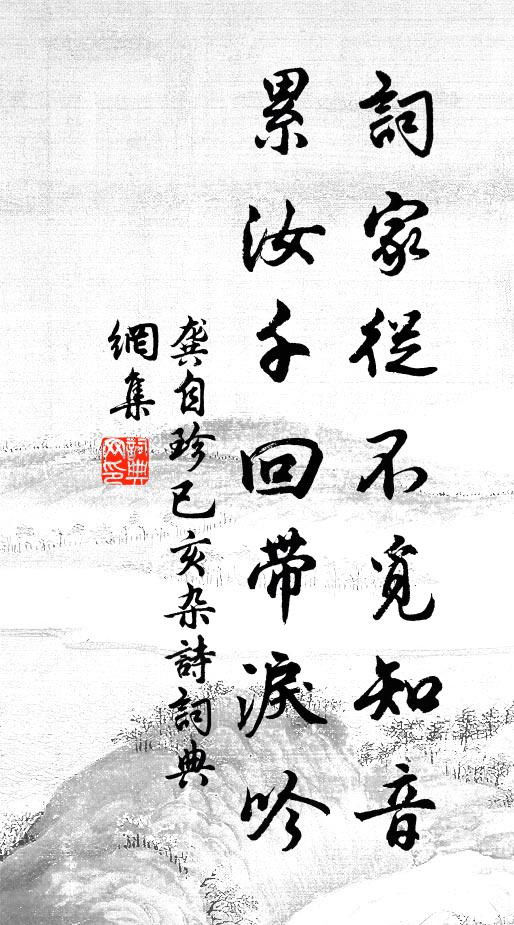 詞家從不覓知音
累汝千回帶淚吟
龔自珍己亥杂詩詞典
網集
詞典网印